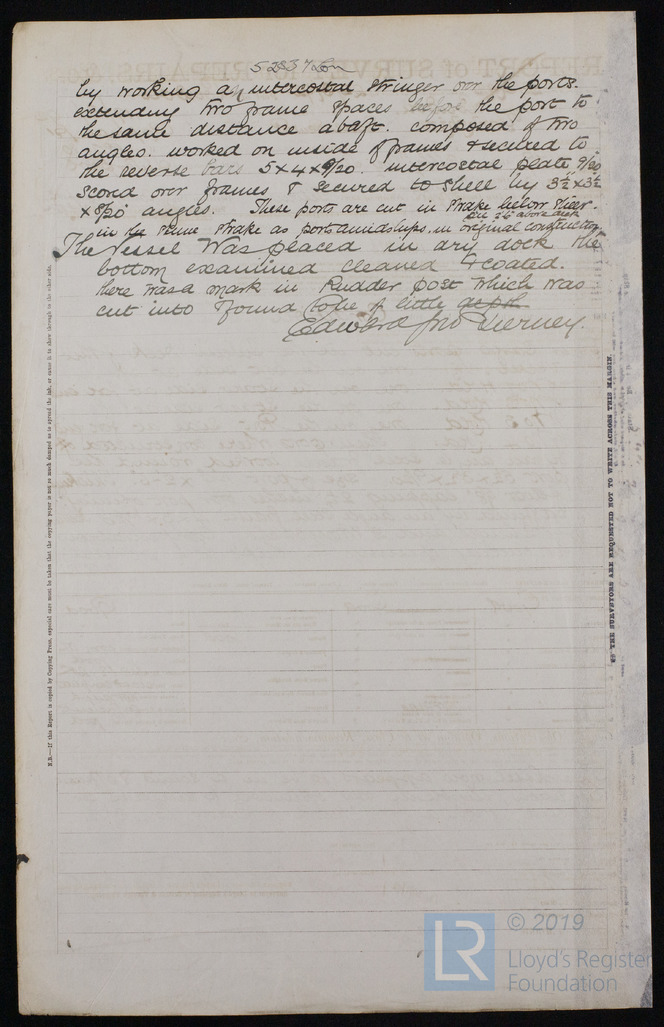 52837 Lon
by working an intercostal stringer over the ports.
extending two frame spaces before the port to
the same distance abaft. composed of two
angles. worked on inside of frames & secured to
the reverse bars 5x4x9/20. intercostal plate 9/20
scored over frames & secured to shell by 3½ x 3½
x 8/20 angles. These ports are cut in strake below sheer.
above deck
in the same strake as ports amidships. in original construction
The Vessel was placed in dry dock the
bottom examined cleaned & coated.
here was a mark in Rudder post which was
cut into & found to be of little depth
Edward Jno Tierney.
N.B.—If this Report is copied by Copying Press, especial care must be taken that the copying paper is not so much damped as to spread the ink, or cause it to show through to the other side.
THE SURVEYORS ARE REQUESTED NOT TO WRITE ACROSS THIS MARGIN.
LR
© 2019
Lloyd's Register
Foundation